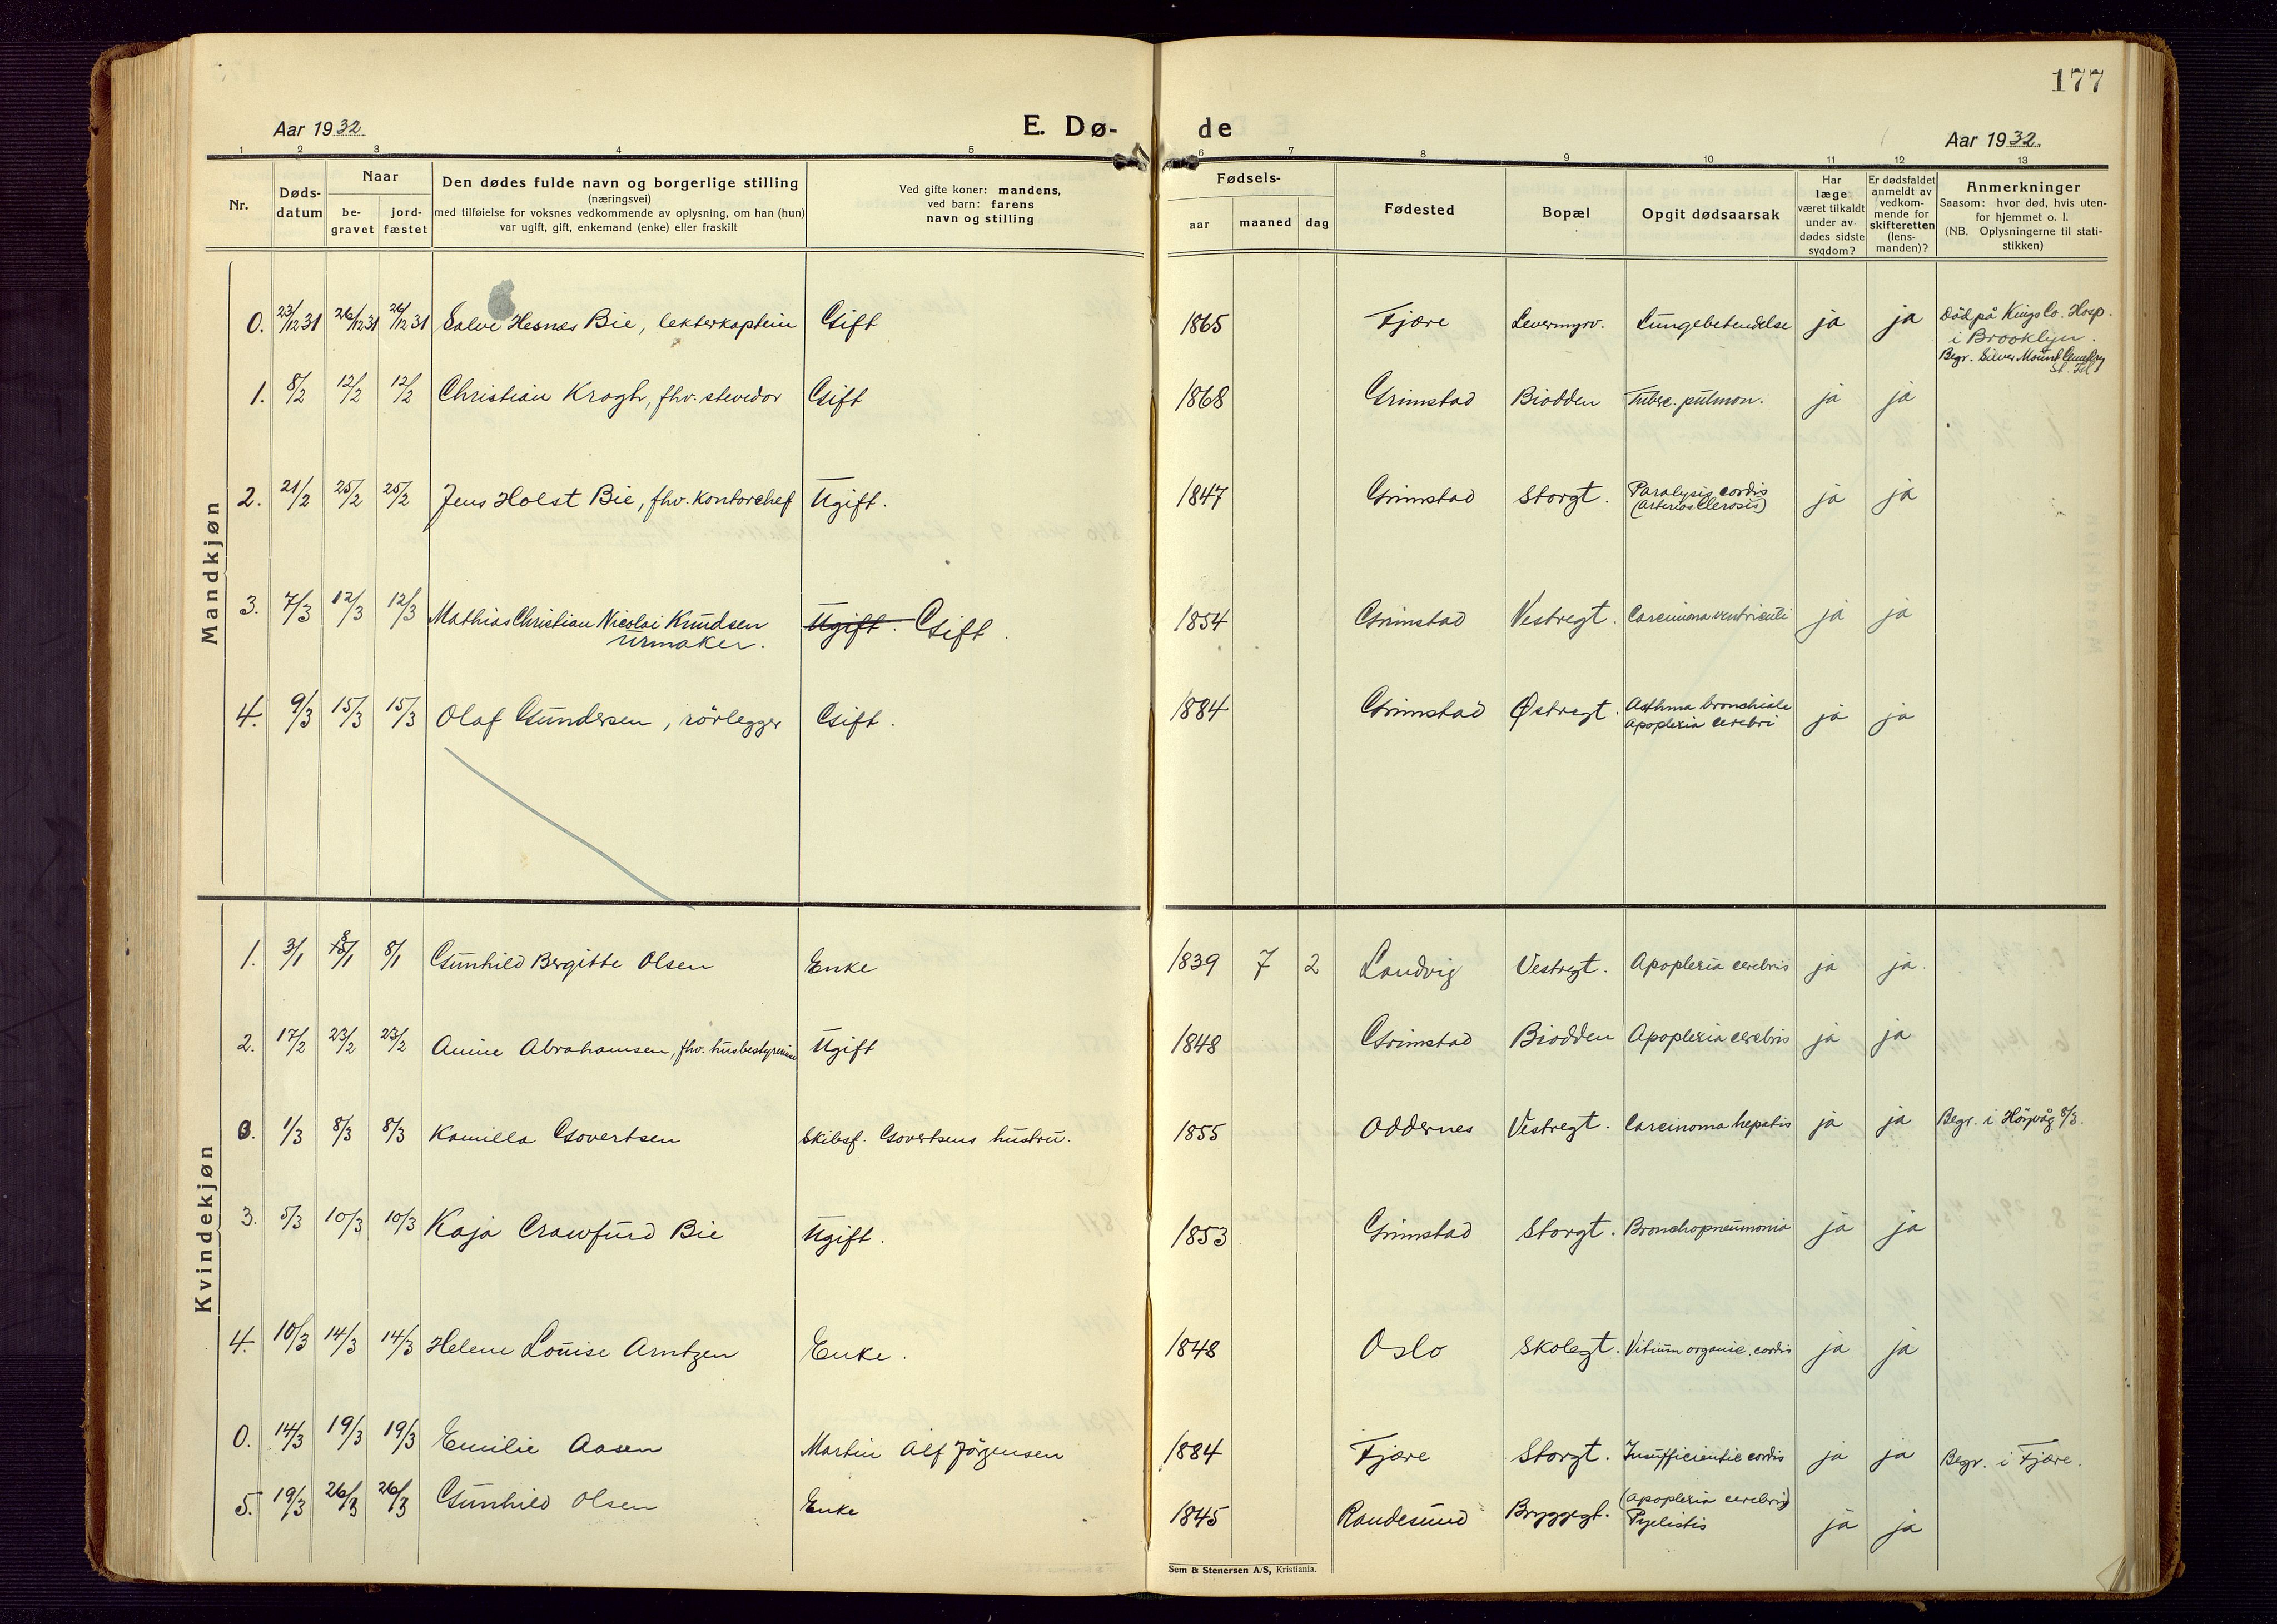 177
Aar 1932
E. Dø-
de
Aar 1932.
1 2 3 4 5 6 7 8 9 10 11 12 13
Nr.
Døds-
datum
Naar
be-
gravet
jord-
fæstet
Den dødes fulde navn og borgerlige stilling
(næringsvei)
med tilføielse for voksnes vedkommende av oplysning, om han (hun)
var ugift, gift, enkemand (enke) eller fraskilt
Ved gifte koner: mandens,
ved barn: farens
navn og stilling
Fødsels-
aar maaned dag
Fødested
Bopæl
Opgit dødsaarsak
Har
læge
været tilkaldt
under av-
dødes sidste
sygdom?
Er dødsfaldet
anmeldt av
vedkom-
mende for
skifteretten
(lens-
manden)?
Anmerkninger
Saasom: hvor død, hvis uten-
for hjemmet o. l.
(NB. Oplysningerne til stati-
stikken)
Mandkjøn
0. 23/12 31 26/12 31 26/12 31 Salve Hesnes Bie, lekterkaptein Gift 1865 Fjære Levermyrv. Lungebetendelse ja ja Död på Kings Co. Hosp.
i Brooklyn.
Begr. Silver Mount Cemetry
St. Isl
1. 8/2 12/2 12/2 Christian Krogh, fhv. stevedor Gift 1868 Grimstad Biodden Tuberc. pulmon. ja ja
2. 21/2 25/2 25/2 Jens Holst Bie, fhv. kontorchef Ugift. 1847 Grimstad Storgt. Paralysis cordis
(arteriosclerosis) ja ja
3. 7/3 12/3 12/3 Mathias Christian Nicolai Knudsen
urmaker. Ugift. Gift. 1854 Grimstad Vestregt. Carcinoma ventriculi ja ja
4. 9/3 15/3 15/3 Olaf Gundersen, rörlegger Gift. 1884 Grimstad Østregt. Asthma bronchiale
Apoplexia cerebri ja ja
Kvindekjøn
1. 3/1 8/1 8/1 Gunhild Bergitte Olsen Enke 1839 7 2 Landvig Vestregt. Apoplexia cerebris ja ja.
2. 17/2 23/2 23/2 Anine Abrahamsen, fhv. husbestyrerinne Ugift 1848 Grimstad Biodden Apoplexia cerebris ja ja
0. 1/3 8/3 8/3 Kamilla Govertsen Skibsf. Govertsens hustru. 1855 Oddernes Vestregt. Carcinoma hepatis ja ja Begr. i Høyvåg 8/3.
3. 5/3 10/3 10/3 Kaja Crawfurd Bie Ugift. 1853 Grimstad Storgt. Bronchopneumonia ja ja
4. 10/3 14/3 14/3 Helene Louise Arntzen Enke. 1848 Oslo Skolegt. Vitium organic. cordis ja ja
0. 14/3 19/3 19/3 Emilie Aasen Martin Alf Jörgensen 1884 Fjære Storgt. Insufficientic cordis ja ja Begr. i Fjære.
5. 19/3 26/3 26/3 Gunhild Olsen Enke 1845 Randesund Bryggegt. (Apoplexia cerebris)
Pyelistis ja ja
Sem & Stenersen A/S, Kristiania.